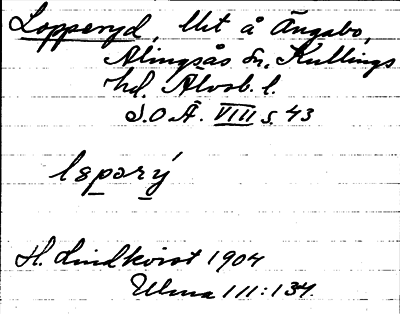 Lopperyd, lht å Ängabo,
Alingsås sn, Kullings
hd, Älvsb. l.
S.O.Ä. VIII s. 43
lspərý
H. Lindkvist 1904
Ulma 111:134.